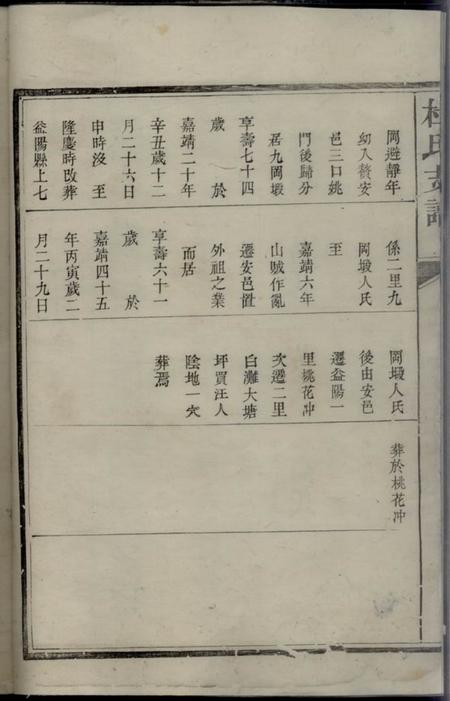 氏支譜
岡避靜年
幼入贅安
邑三口姚
門後歸分
居九岡塅
享壽七十四
歲 於
嘉靖二十年
辛丑歲十二
月二十六日
申時沒 至
隆慶時改葬
益陽縣上七
係二里九
岡塅人氏
至
嘉靖六年
山賊作亂
遷安邑置
外祖之業
而居
享壽六十一
歲 於
嘉靖四十五
年丙寅歲二
月二十九日
岡塅人氏
後由安邑
遷益陽一
里桃花冲
次遷二里
白灘大塘
坪買汪人
陰地一穴
葬焉
葬於桃花冲